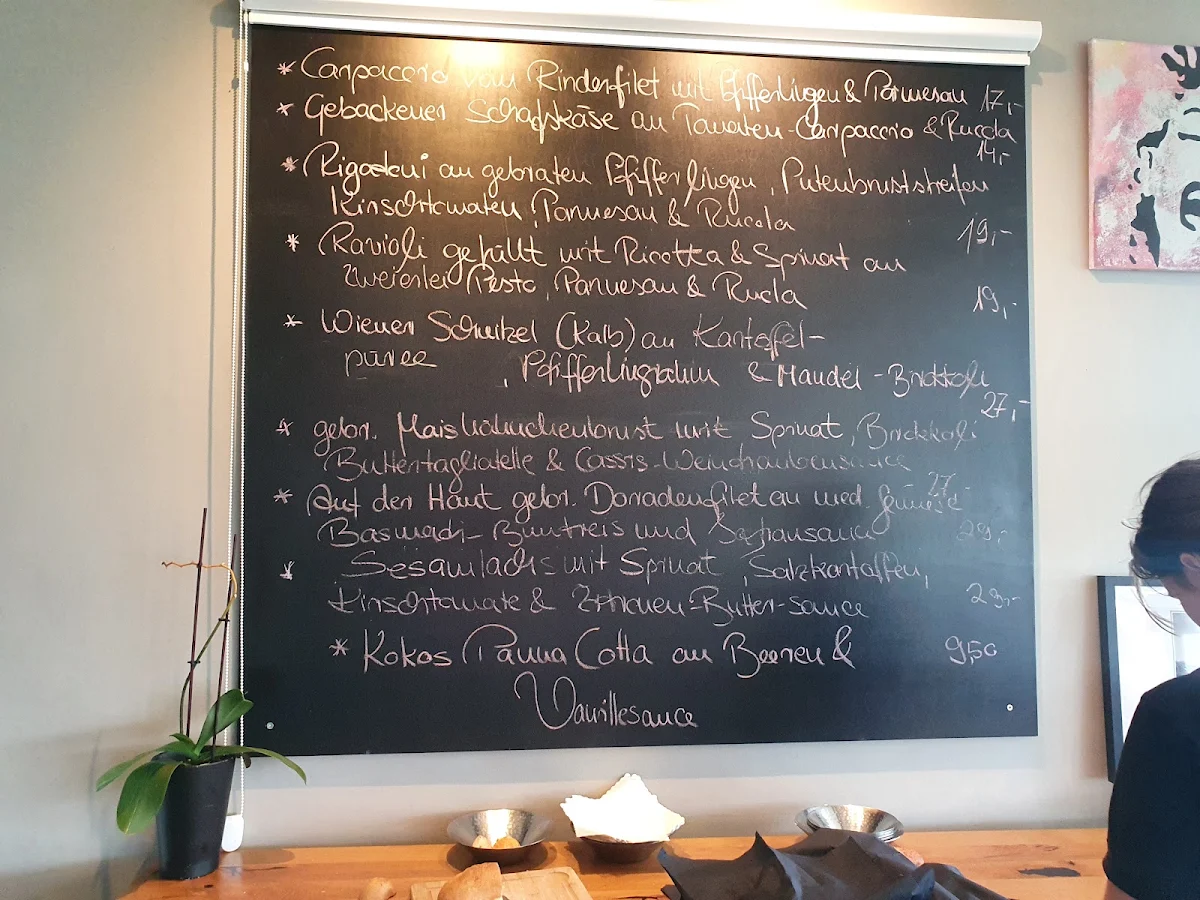 * Carpaccio vom Rinderfilet mit Pfifferlingen & Parmesan 17,-
* Gebackener Schafskäse an Tomaten-Carpaccio & Rucola
14,-
* Rigatoni an gebraten Pfifferlingen, Putenbruststreifen
Kirschtomaten, Parmesan & Rucola 19,-
* Ravioli gefüllt mit Ricotta & Spinat an
Zweierlei Pesto, Parmesan & Rucla 19,-
* Wiener Schnitzel (Kalb) an Kartoffel-
püree , Pfifferlingrahm & Mandel-Brokkoli
27,-
* gebr. Maishähnchenbrust mit Spinat, Brokkoli
Buttertagliatelle & Cassis-Weintraubensauce
27,-
* Auf der Haut gebr. Doradenfilet an med. Gemüse
Basmadi-Buntreis und Safransauce 29,-
* Sesamlachs mit Spinat, Salzkartoffeln,
Kirschtomate & Zitronen-Butter-sauce 29,-
* Kokos Panna Cotta an Beeren & 9,50
Vanillesauce